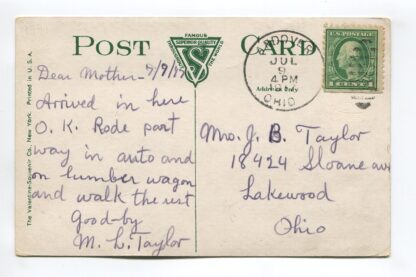 POST CARD
FAMOUS
SUPERIOR QUALITY
THE WORLD
Address Only
JUL
9
4 PM
OHIO
Dear Mother- 7/9/17
Arrived in here
O.K. Rode part
way in auto and
on lumber wagon
and walk the rest
Good-by
M. L. Taylor
Mrs. J. B. Taylor
18424 Sloane ave
Lakewood
Ohio
The Valentine-Souvenir Co., New York. Printed in U.S.A.